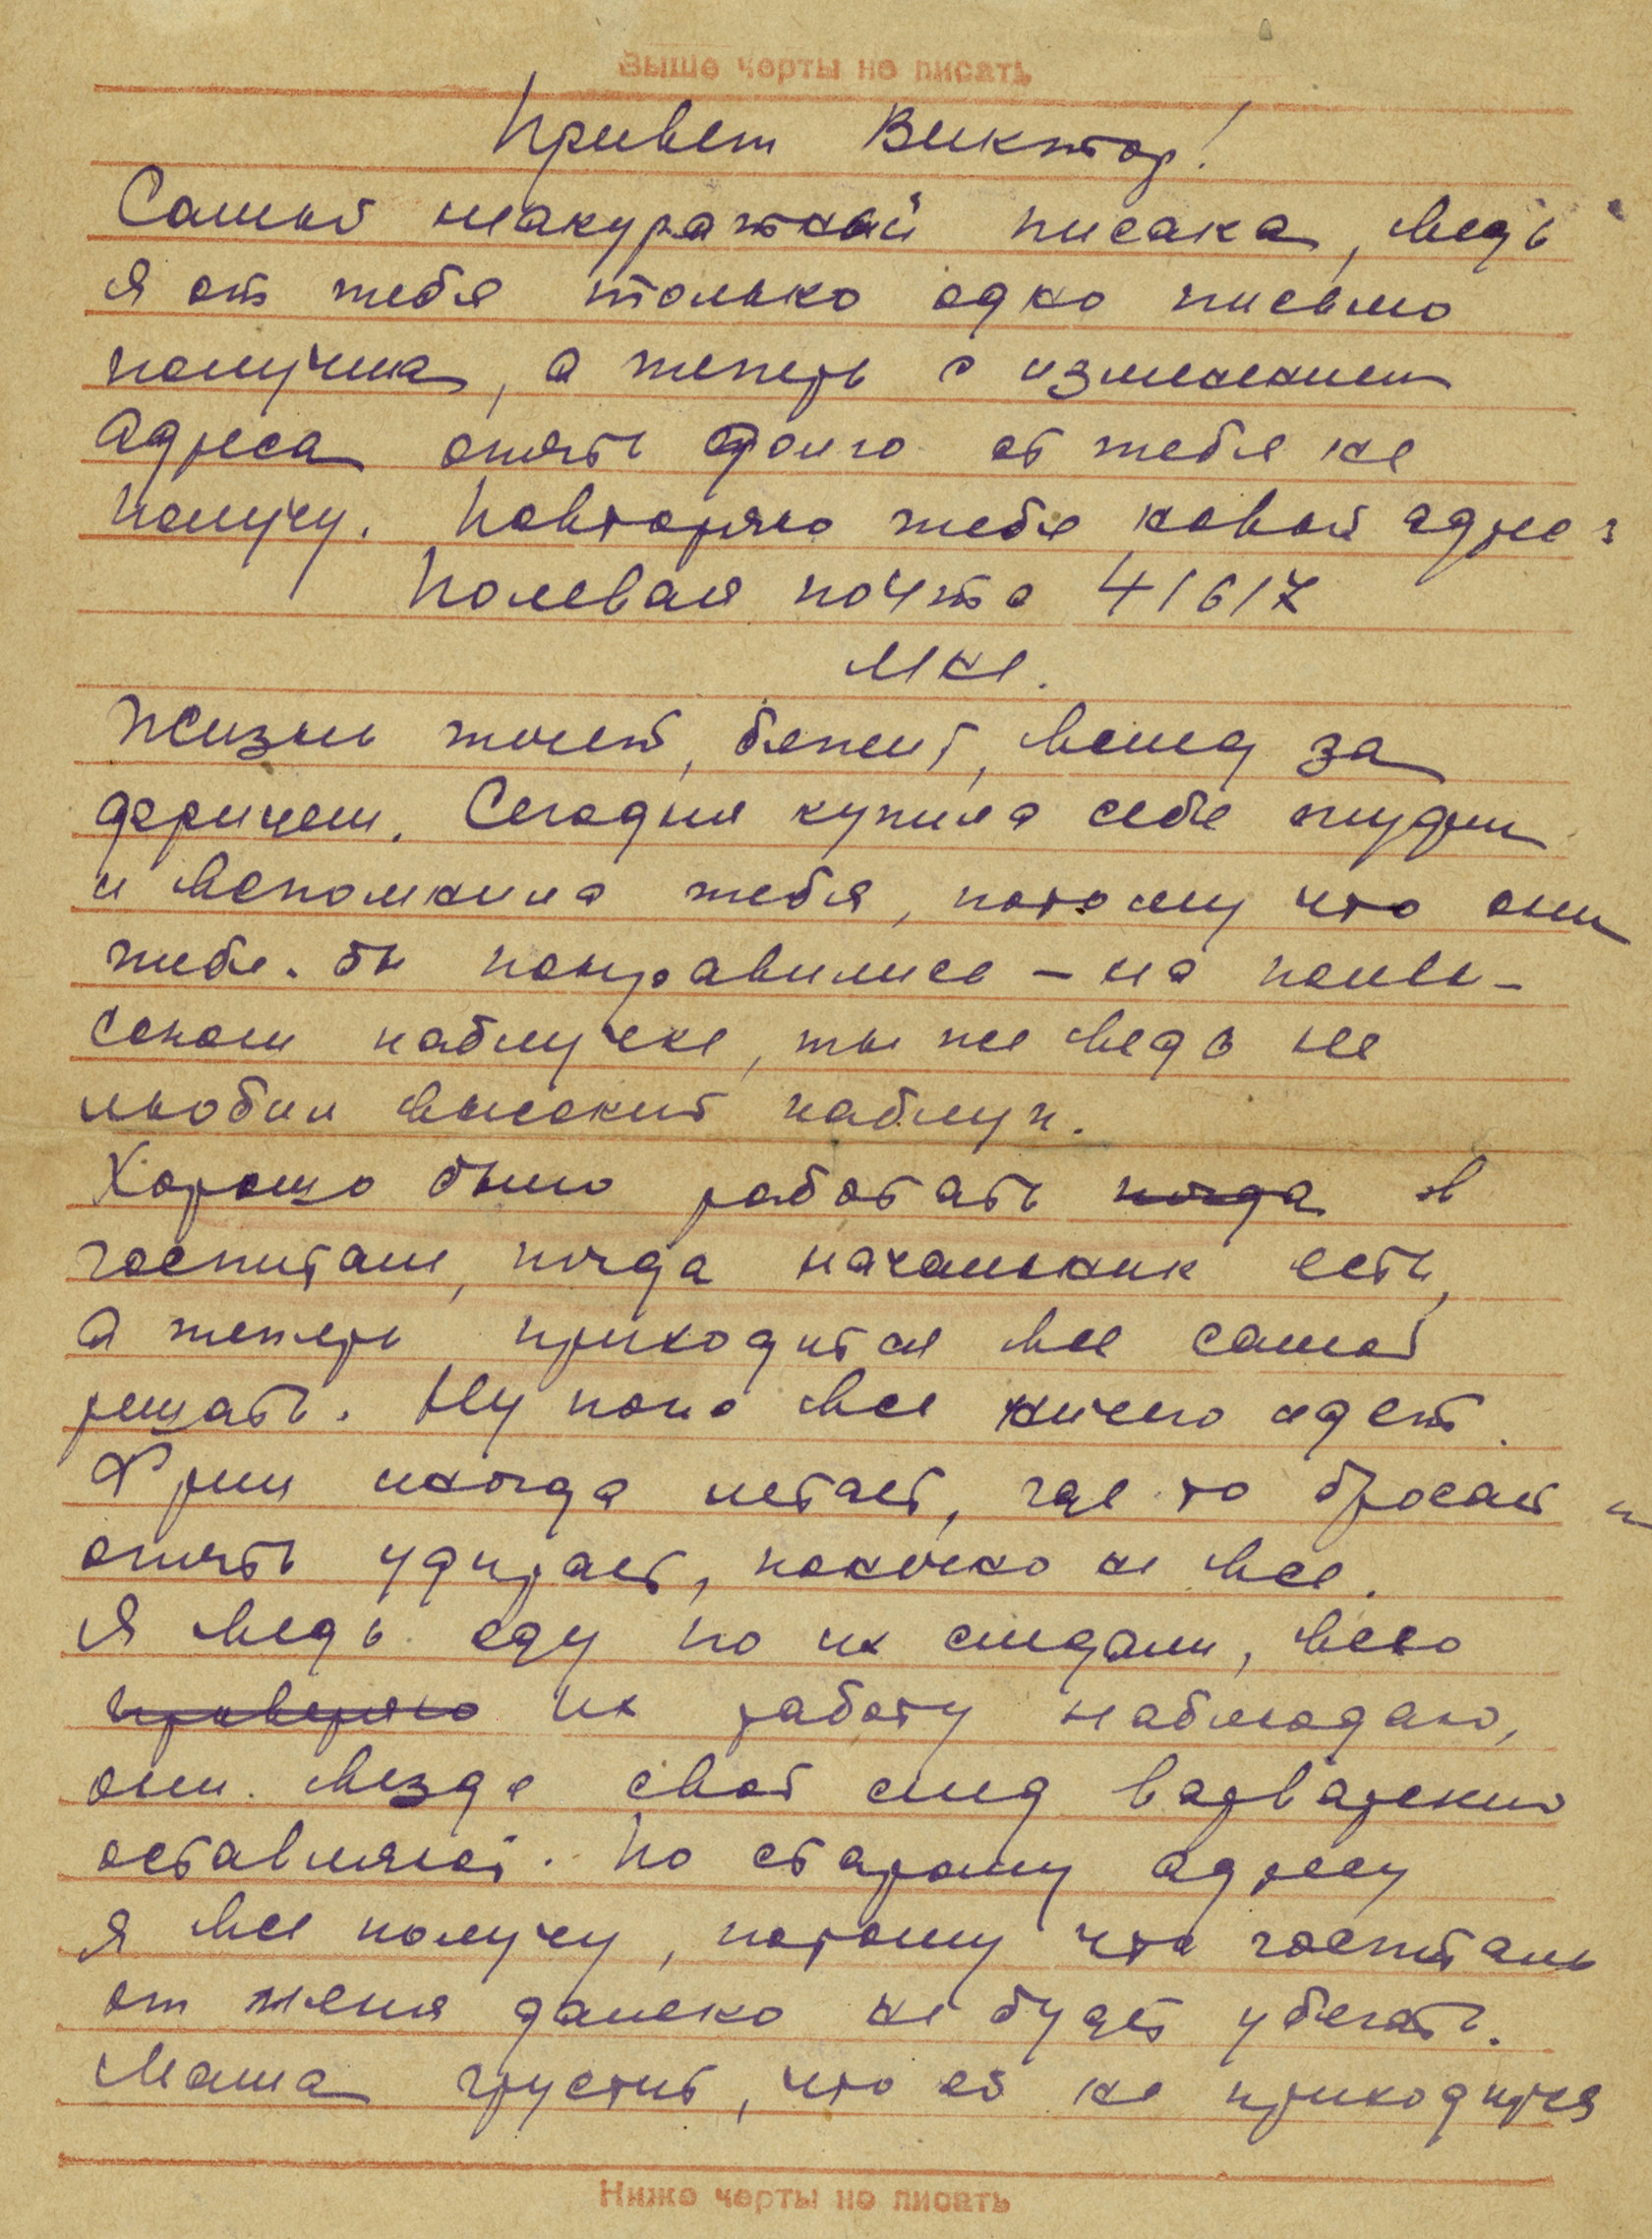 Выше черты не писать
Привет Виктор!
Самый неакуратный писака, ведь
я от тебя только одно письмо
получила, а теперь с изменением
адреса опять долго от тебя не
получу. Повторяю тебе новый адрес:
Полевая почта 41617
мне.
Жизнь течет, бежит, вслед за
фрицем. Сегодня купила себе туфли
и вспомнила тебя, потому что они
тебе бы понравились – на полвы-
соком каблучке, ты же ведь не
любил высокий каблук.
Хорошо было работать когда в
госпитале, когда начальник есть,
а теперь приходится все самой
решать. Ну пока все ничего идет.
Фриц иногда летает, где то бросает и
опять удирает, конечно не все.
Я ведь еду по их следам, всю
проверяю их работу наблюдаю,
они везде свой след варварский
оставляют. По старому адресу
я все получу, потому что госпиталь
от меня далеко не будет убегать.
Маша грустит, что ей не приходится
Ниже черты не писать